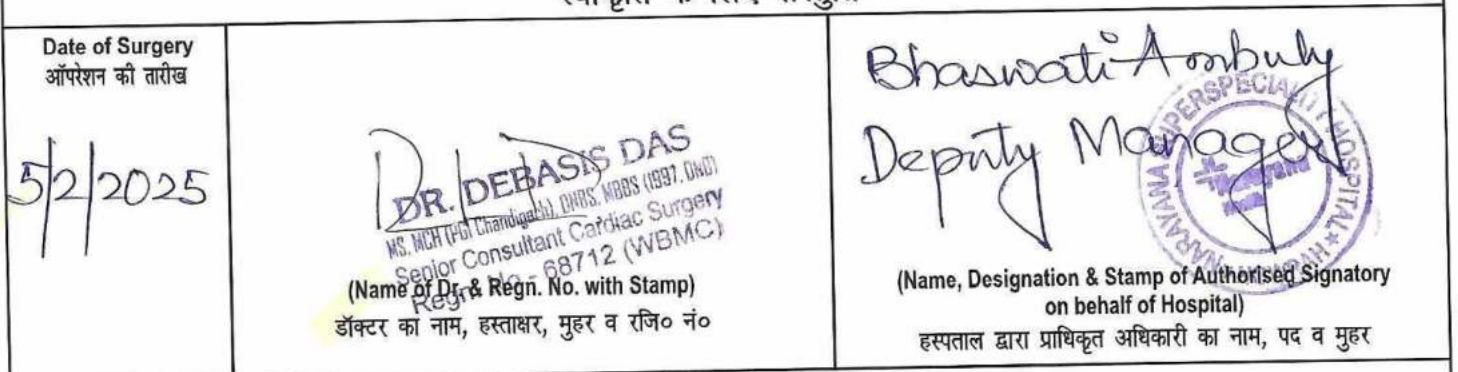 Date of Surgery
ऑपरेशन की तारीख
5/2/2025
DR. DEBASIS DAS
MS, MCH (PGI Chandigarh), DNBS, MBBS (1997, DND)
Senior Consultant Cardiac Surgery
Regn No - 68712 (WBMC)
(Name of Dr. & Regn. No. with Stamp)
डॉक्टर का नाम, हस्ताक्षर, मुहर व रजि० नं०
Bhaswati Ambuly
Deputy Manager
NARAYANA SUPERSPECIALITY HOSPITAL
(Name, Designation & Stamp of Authorised Signatory
on behalf of Hospital)
हस्पताल द्वारा प्राधिकृत अधिकारी का नाम, पद व मुहर